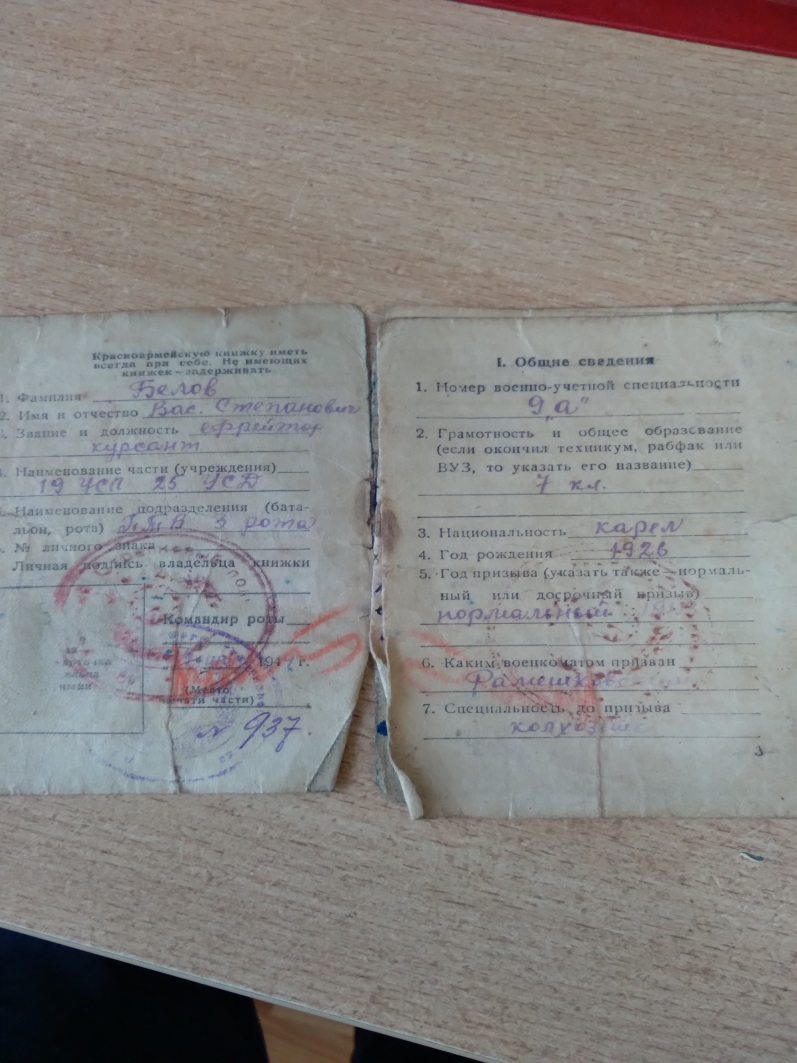 Красноармейскую книжку иметь
всегда при себе. Не имеющих
книжек—задерживать
1. Фамилия Белов
2. Имя и отчество Вас. Степанович
Звание и должность ефрейтор
курсант
Наименование части (учреждения)
19 УСП 25 УСД
Наименование подразделения (бата-
льон, рота) 3 рота
№ личного знака
Личная подпись владельца книжки
Командир роты
194 г.
(Место
печати части)
№ 937.
I. Общие сведения
1. Номер военно-учетной специальности
9 "а"
2. Грамотность и общее образование
(если окончил техникум, рабфак или
ВУЗ, то указать его название)
7 кл.
3. Национальность карел
4. Год рождения 1926
5. Год призыва (указать также—нормаль-
ный или досрочный призыв)
нормальный
6. Каким военкоматом призван
7. Специальность до призыва
3